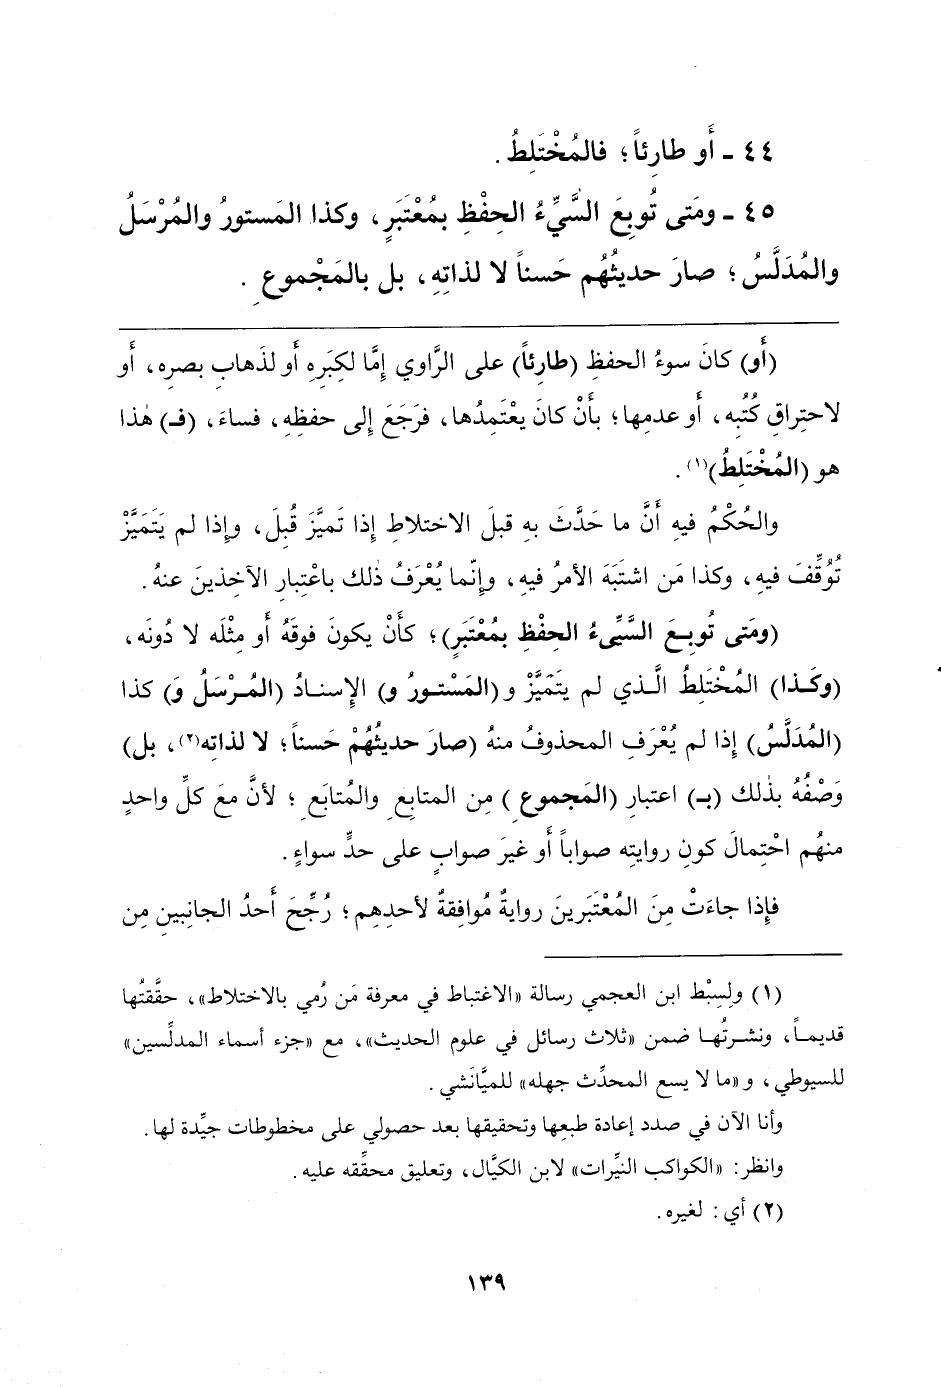 ٤٤ ـ أَو طارِئاً؛ فالمُخْتَلِطُ.
٤٥ ـ ومَتى تُوبِعَ السَّيِّءُ الحِفْظِ بمُعْتَبَرٍ، وكذا المَستورُ والمُرْسَلُ
والمُدَلَّسُ؛ صارَ حديثُهُم حَسناً لا لذاتِهِ، بل بالمَجْموعِ.
(أَو) كانَ سوءُ الحفظِ (طارِئاً) على الرَّاوي إِمَّا لكِبَرِهِ أَو لذَهابِ بصرِه، أَو
لاحتِراقِ كُتُبه، أَو عدمِها؛ بأَنْ كانَ يعْتَمِدُها، فرَجَعَ إِلى حفظِهِ، فساءَ، (فـ) هٰذا
هو (المُخْتَلِطُ)(١).
والحُكْمُ فيهِ أَنَّ ما حَدَّثَ بهِ قبلَ الاختلاطِ إِذا تَميَّزَ قُبِلَ، وإِذا لم يَتَميَّزْ
تُوُقِّفَ فيهِ، وكذا مَن اشتَبَهَ الأمرُ فيهِ، وإِنَّما يُعْرَفُ ذٰلك باعْتِبارِ الآخِذينَ عنهُ.
(ومَتى تُوبِعَ السَّيِّىءُ الحِفْظِ بمُعْتَبَرٍ)؛ كأَنْ يكونَ فوقَهُ أَو مِثْلَه لا دُونَه،
(وكَـذا) المُخْتَلِطُ الَّـذي لم يتَمَيَّزْ و(المَسْتـورُ و) الإِسنـادُ (المُـرْسَلُ وَ) كذا
(المُدَلَّسُ) إِذا لم يُعْرَفِ المحذوفُ منهُ (صارَ حديثُهُمْ حَسناً؛ لا لذاتِه(٢)، بل)
وَصْفُهُ بذٰلك (بـ) اعتبارِ (المَجموعِ) مِن المتابِعِ والمُتابَعِ؛ لأنَّ معَ كلِّ واحدٍ
منهُم احْتِمالَ كونِ روايتِه صواباً أَو غيرَ صوابٍ على حدٍّ سواءٍ.
فإِذا جاءَتْ مِنَ المُعْتَبَرينَ روايةٌ مُوافِقةٌ لأحدِهِم؛ رُجِّحَ أَحدُ الجانِبينِ مِن
(١) ولِسِبْط ابن العجمي رسالة «الاغتباط في معرفة مَن رُمي بالاختلاط»، حقَّقتُها
قديمـاً، ونشـرتُهـا ضمن «ثلاث رسائل في علوم الحديث»، مع «جزء أسماء المدلِّسين»
للسيوطي، و«ما لا يسع المحدِّث جهله» للميَّانَشي.
وأنا الآن في صدد إعادة طبعها وتحقيقها بعد حصولي على مخطوطات جيِّدة لها.
وانظر: «الكواكب النيِّرات» لابن الكيَّال، وتعليق محقِّقه عليه.
(٢) أي: لغيره.
١٣٩